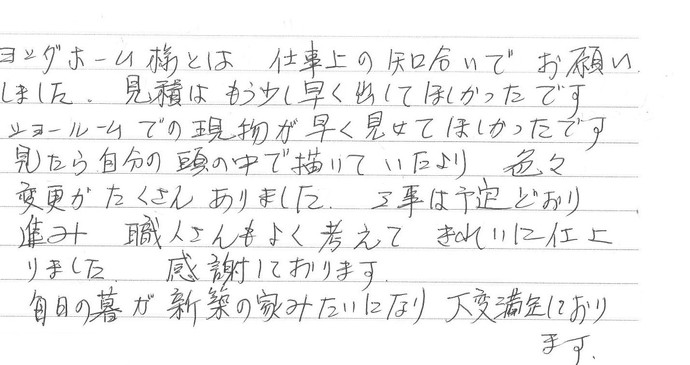 ヨングホーム様とは 仕事上の知合いで お願い
しました。見積はもう少し早く出してほしかったです
ショールームでの現物が早く見せてほしかったです
見たら自分の頭の中で描いていたより 色々
変更がたくさんありました。工事は予定どおり
進み 職人さんもよく考えて きれいに仕上
りました。 感謝しております。
毎日の暮が新築の家みたいになり 大変満足しており
ます。